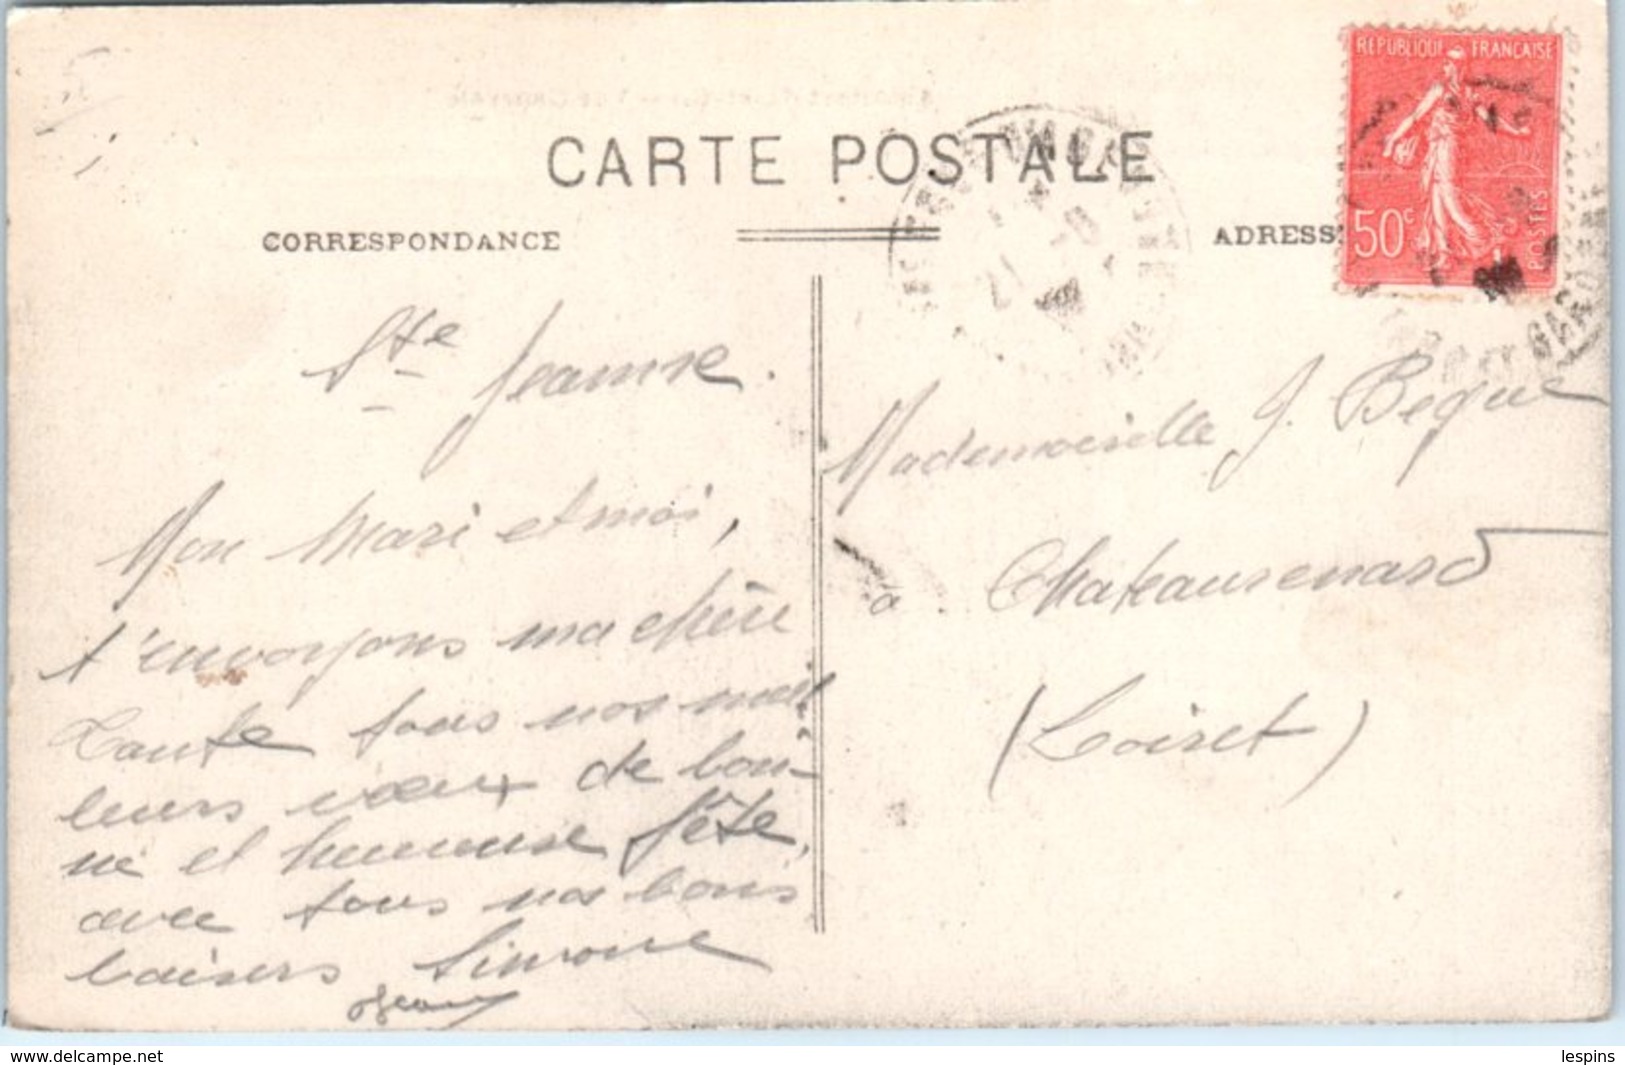 CARTE POSTALE
CORRESPONDANCE
ADRESS
REPUBLIQUE FRANÇAISE
50c
POSTES
Ste Jeanne.
Mon Mari et moi,
t'envoyons ma chère
tante tous nos meil
leurs vœux de bon-
ne et heureuse fête,
avec tous nos bons
baisers Simone
Mademoiselle J. Beque
à Chateaurenard
(Loiret)
www.delcampe.net
lespins